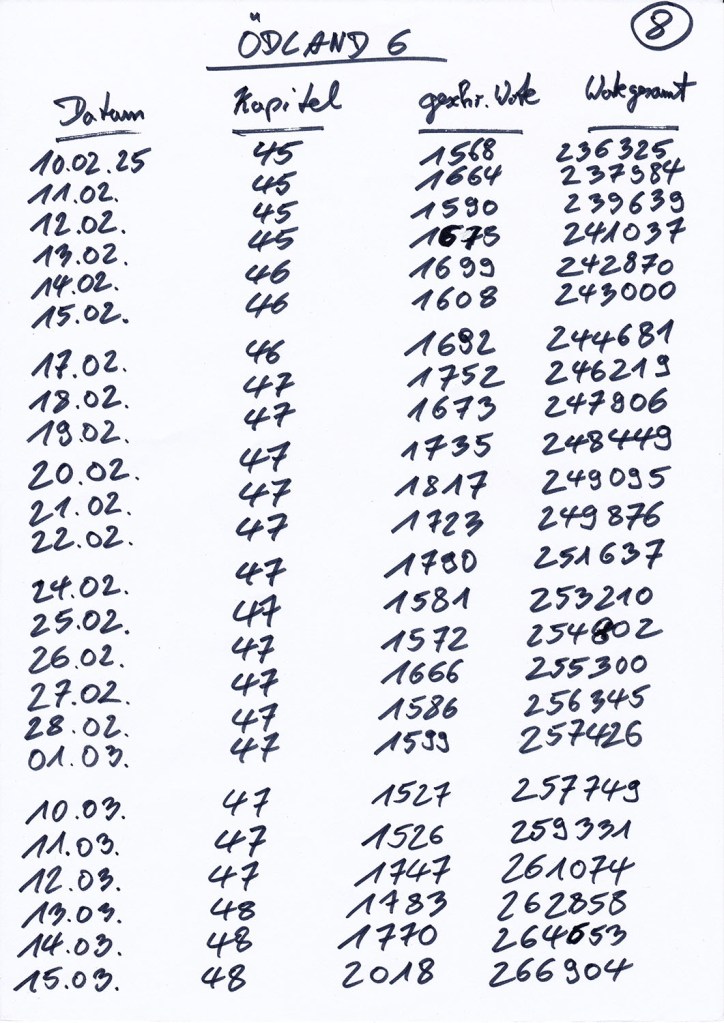 ÖDLAND 6
8
Datum Kapitel geschr. Worte Worte gesamt
10.02.25 45 1568 236325
11.02. 45 1664 237984
12.02. 45 1590 239639
13.02. 45 1675 241037
14.02. 46 1699 242870
15.02. 46 1608 243000
17.02. 46 1692 244681
18.02. 47 1752 246219
19.02. 47 1673 247906
20.02. 47 1735 248449
21.02. 47 1817 249095
22.02. 47 1723 249876
24.02. 47 1790 251637
25.02. 47 1581 253210
26.02. 47 1572 254802
27.02. 47 1666 255300
28.02. 47 1586 256345
01.03. 47 1599 257426
10.03. 47 1527 257749
11.03. 47 1526 259331
12.03. 47 1747 261074
13.03. 48 1783 262858
14.03. 48 1770 264653
15.03. 48 2018 266904